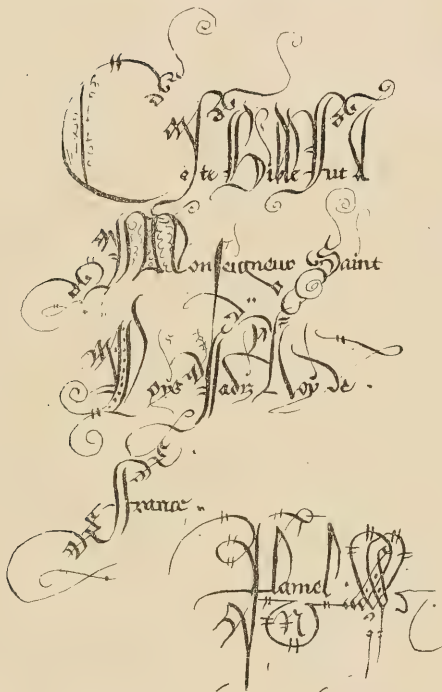 Ceste Bible fut a
Monseigneur Saint
Loys Jadiz Roy de.
france.
Flamel.